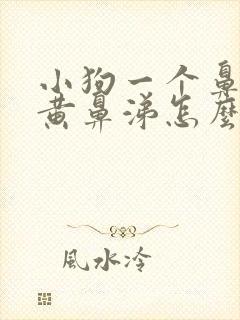 小狗一个鼻
黄鼻涕怎麼
風水冷